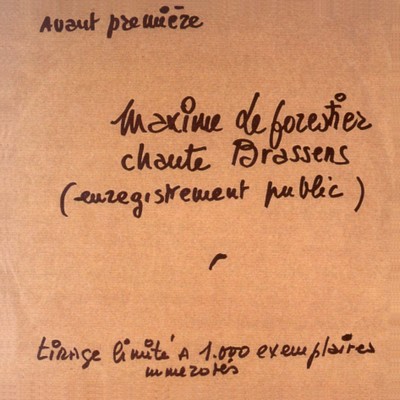 Avant première
Maxime le forestier
chante Brassens
(enregistrement public)
tirage limité A 1.000 exemplaires
numerotés